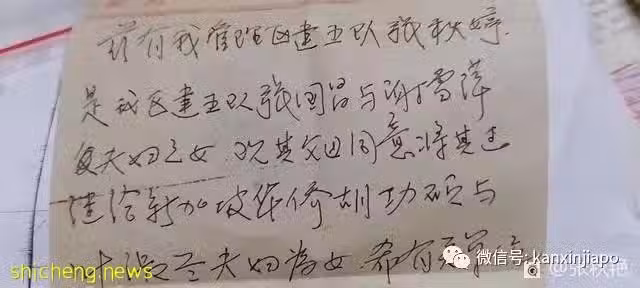 兹有我管理区建五队张秋婷
是我区建五队张国昌与谢雪萍
夫妇之女 现其父母同意将其过
给新加坡华侨胡功硕与
夫妇为女 希有
shicheng news
微信号: kanxinjiapo
@张秋艳